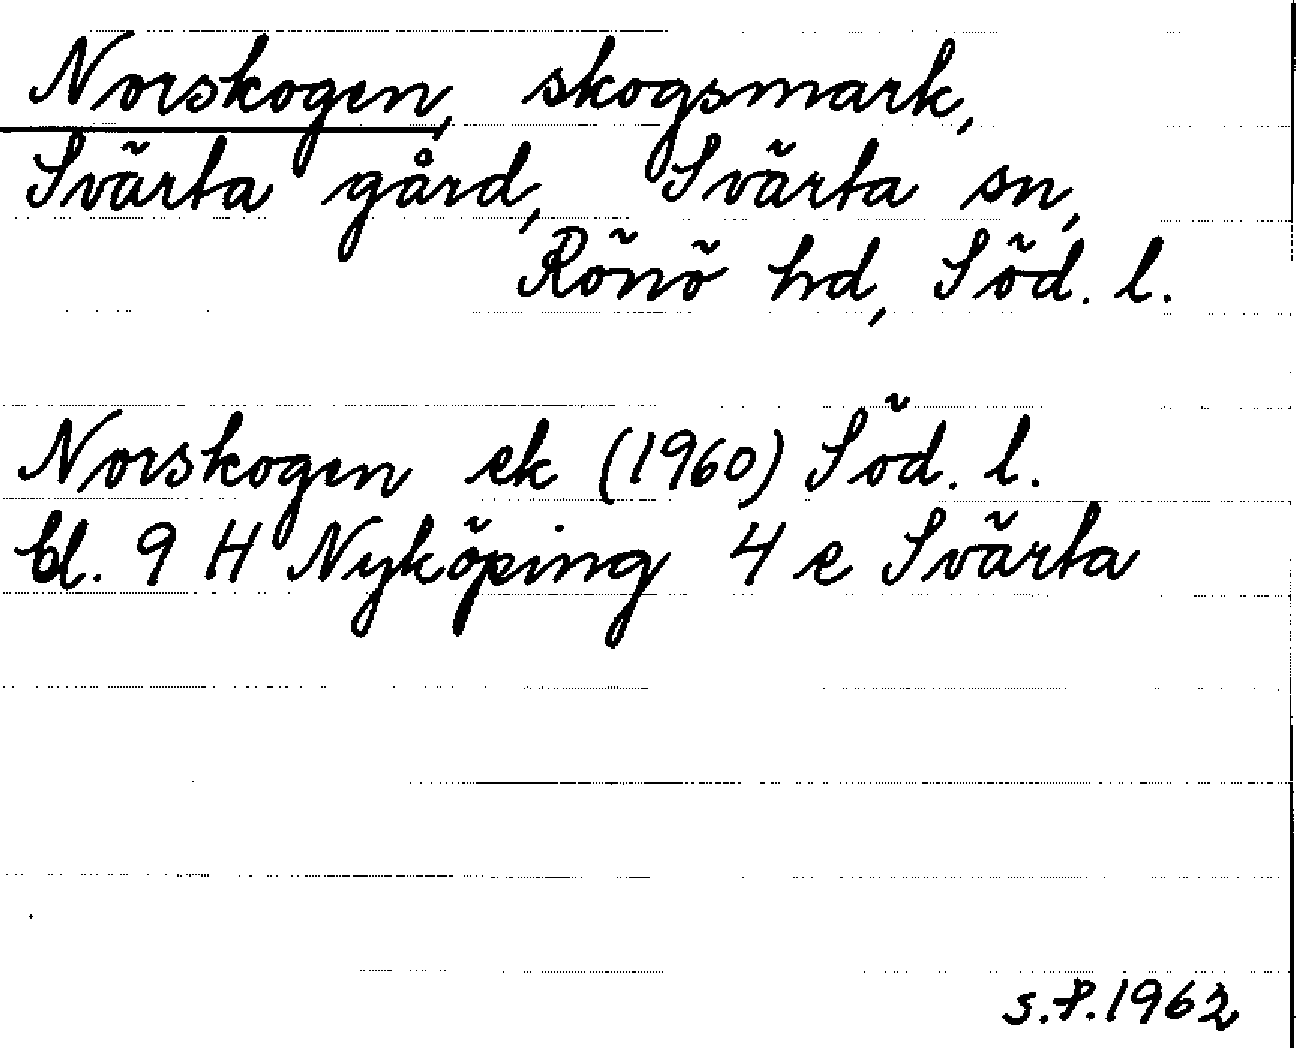 Norskogen, skogsmark,
Svärta gård, Svärta sn,
Rönö hd, Söd. l.
Norskogen ek (1960) Söd. l.
bl. 9 H Nyköping 4 e Svärta
S.P. 1962